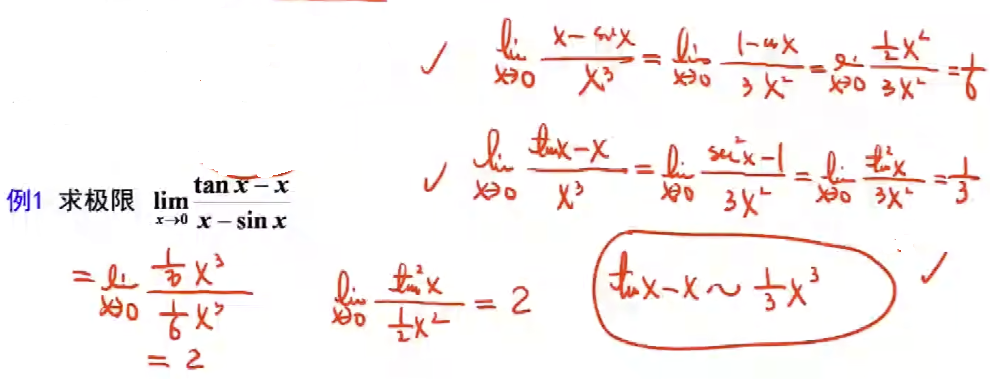 ✓ lim x→0 (x - sin x)/x³ = lim x→0 (1 - cos x)/(3x²) = lim x→0 (½x²)/(3x²) = 1/6
✓ lim x→0 (tan x - x)/x³ = lim x→0 (sec²x - 1)/(3x²) = lim x→0 (tan²x)/(3x²) = 1/3
例1 求极限 lim x→0 (tan x - x)/(x - sin x)
= lim x→0 (1/3 x³)/(1/6 x³)
= 2
lim x→0 (tan²x)/(½x²) = 2
tan x - x ~ 1/3 x³ ✓